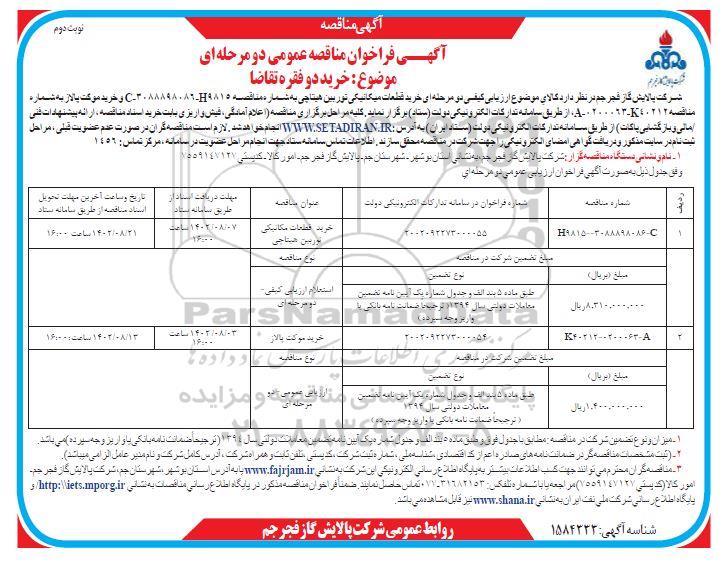 آگهی مناقصه
نوبت دوم
آگهـــی فراخوان مناقصه عمومی دو مرحله ای
موضوع: خرید دو فقره تقاضا
شرکت پالایش گاز فجر جم
شرکت پالایش گاز فجر جم در نظر دارد کالای موضوع ارزیابی کیفی دو مرحله ای خرید قطعات میکانیکی توربین هیتاچی به شماره مناقصه C-3088898086-H9815 و خرید موکت پالاز به شماره
مناقصه A-0200023-K40212، از طریق سامانه تدارکات الکترونیکی دولت (ستاد) برگزار نماید. کلیه مراحل برگزاری مناقصه (اعلام آمادگی، فیش واریزی بابت خرید اسناد مناقصه، ارائه پیشنهادات فنی
/مالی و بازگشایی پاکات) از طریق سامانه تدارکات الکترونیکی دولت (ستاد ایران) به آدرس: WWW.SETADIRAN.IR انجام خواهد شد. لازم است مناقصه گران در صورت عدم عضویت قبلی، مراحل
ثبت نام در سایت مذکور و دریافت گواهی امضای الکترونیکی را جهت شرکت در مناقصه محقق سازند. اطلاعات تماس سامانه ستاد جهت انجام مراحل عضویت در سامانه، مرکز تماس: 1456
1- نام و نشانی دستگاه مناقصه گزار: شرکت پالایش گاز فجر جم به نشانی استان بوشهر- شهرستان جم- پالایش گاز فجر جم- امور کالا- کدپستی 7559147127
وفق جدول ذیل به صورت آگهی فراخوان ارزیابی عمومی دو مرحله ای
ردیف | شماره مناقصه | شماره فراخوان در سامانه تدارکات الکترونیکی دولت | عنوان مناقصه | مهلت دریافت اسناد از طریق سامانه ستاد | تاریخ و ساعت آخرین مهلت تحویل اسناد مناقصه از طریق سامانه ستاد
1 | H9815--3088898086-C | 2002092273000055 | خرید قطعات مکانیکی توربین هیتاچی | 1402/08/07 ساعت 16:00 | 1402/08/21 ساعت 16:00
مبلغ تضمین شرکت در مناقصه | نوع مناقصه
مبلغ (بریال) | نوع تضمین | استعلام ارزیابی کیفی- دو مرحله ای
8.310.000.000 ریال | طبق ماده 5 بند الف و جدول شماره یک آیین نامه تضمین معاملات دولتی سال 1394 (ترجیحاً ضمانت نامه بانکی یا واریز وجه سپرده)
2 | K40212--0200063-A | 2002092273000054 | خرید موکت پالاز | 1402/08/03 ساعت 16:00 | 1402/08/13 ساعت: 16:00
مبلغ تضمین شرکت در مناقصه | نوع مناقصه
مبلغ (بریال) | نوع تضمین | ارزیابی عمومی- دو مرحله ای
1.400.000.000 ریال | طبق ماده 5 بند الف و جدول شماره یک آیین نامه تضمین معاملات دولتی سال 1394 (ترجیحاً ضمانت نامه بانکی یا واریز وجه سپرده)
1- میزان و نوع تضمین شرکت در مناقصه: مطابق با جدول فوق و طبق ماده 5 بند الف و جدول شماره یک آیین نامه تضمین معاملات دولتی سال 1394 (ترجیحاً ضمانت نامه بانکی یا واریز وجه سپرده) می باشد.
2- (ثبت مشخصات مناقصه گر در ضمانت نامه های صادره اعم از کد اقتصادی، شناسه ملی، شماره ثبت شرکت، کدپستی، تلفن ثابت و همراه شرکت، آدرس کامل شرکت و نام مدیر عامل الزامی میباشد).
3- مناقصه گران محترم می توانند جهت کسب اطلاعات بیشتر به پایگاه اطلاع رسانی الکترونیکی این شرکت به نشانی www.fajrjam.ir یا به آدرس استان بوشهر، شهرستان جم، شرکت پالایش گاز فجر جم،
امور کالا (کدپستی 7559147127) مراجعه یا با شماره تلفکس: 31682153-077 تماس حاصل نمایند. ضمناً فراخوان مناقصه مذکور در پایگاه اطلاع رسانی مناقصات به نشانی http:\\iets.mporg.ir و
پایگاه اطلاع رسانی شرکت ملی نفت ایران به نشانی www.shana.ir نیز قابل مشاهده می باشد.
شناسه آگهی: 1584333
روابط عمومی شرکت پالایش گاز فجر جم
ParsNamadData
پایگاه اطلاع رسانی مناقصه و مزایده